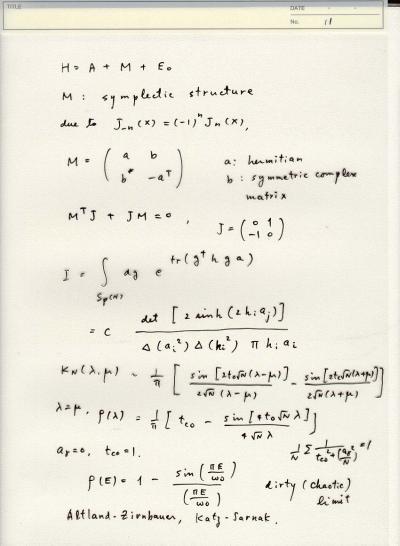 TITLE
DATE
No. 11
H = A + M + E₀
M : symplectic structure
due to J₋ₙ(x) = (-1)ⁿ Jₙ(x),
M = ( a b ; b* -aᵀ ) a: hermitian
b : symmetric complex
matrix
MᵀJ + JM = 0 , J = ( 0 1 ; -1 0 )
I = ∫_{Sp(N)} dg e^{tr(g† h g a)}
= C det [ 2 sinh (2 hᵢ aⱼ) ] / Δ(aᵢ²) Δ(hᵢ²) Π hᵢ aᵢ
K_N(λ, μ) ~ 1/π [ sin[2t₀√N(λ-μ)] / 2√N(λ-μ) - sin[2t₀√N(λ+μ)] / 2√N(λ+μ) ]
λ=μ, ρ(λ) = 1/π [ t_{c0} - sin[4t₀√N λ] / 4√N λ ]
a_γ=0, t_{c0}=1. 1/N Σ 1 / (t_{c0}² + (a_γ²/N)) = 1
ρ(E) = 1 - sin(πE/ω₀) / (πE/ω₀) dirty (chaotic)
limit
Altland-Zirnbauer, Katz-Sarnak.